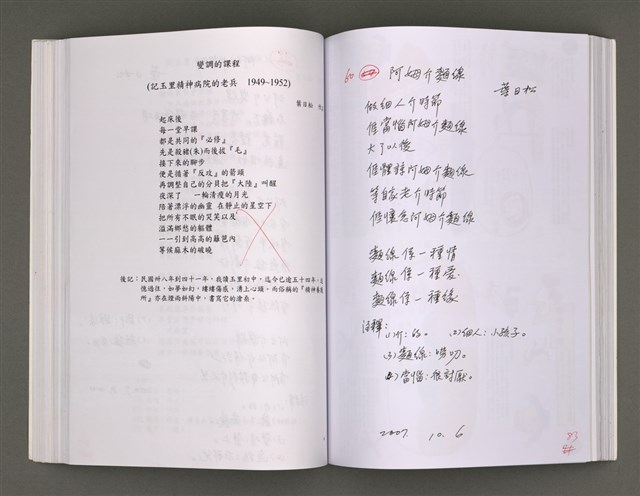 變調的課程
(記玉里精神病院的老兵 1949~1952)
葉日松
起床後
每一堂早課
都是共同的『必修』
先是殺豬(朱)而後拔『毛』
接下來的腳步
便是循著『反攻』的箭頭
再調整自己的分貝把『大陸』叫醒
夜深了 一輪清瘦的月光
陪著漂浮的幽靈 在靜止的星空下
把所有不眠的哭笑以及
溢滿鄉愁的軀體
一一引到高高的籬笆內
等候麻木的破曉
後記：民國卅八年到四十一年，我讀玉里初中，迄今已逾五十四年，
憶過往，如夢如幻，縷縷傷痕，湧上心頭。而俗稱的『精神
所』亦在煙雨斜陽中，書寫它的滄桑。
60 阿姆介麵線
葉日松
做細人介時節
偃當惱阿姆介麵線
大了以後
偃體諒阿姆介麵線
等自家老介時節
偃懷念阿姆介麵線
麵線係一種情
麵線係一種愛
麵線係一種緣
註釋：
(1)介：的。 (2)細人：小孩子。
(3)麵線：嘮叨。
(4)當惱：很討厭。
2007. 10. 6
83